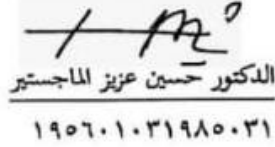 الدكتور حسين عزيز الماجستير
١٩٥٦٠١٠٣١٩٨٥٠٣١